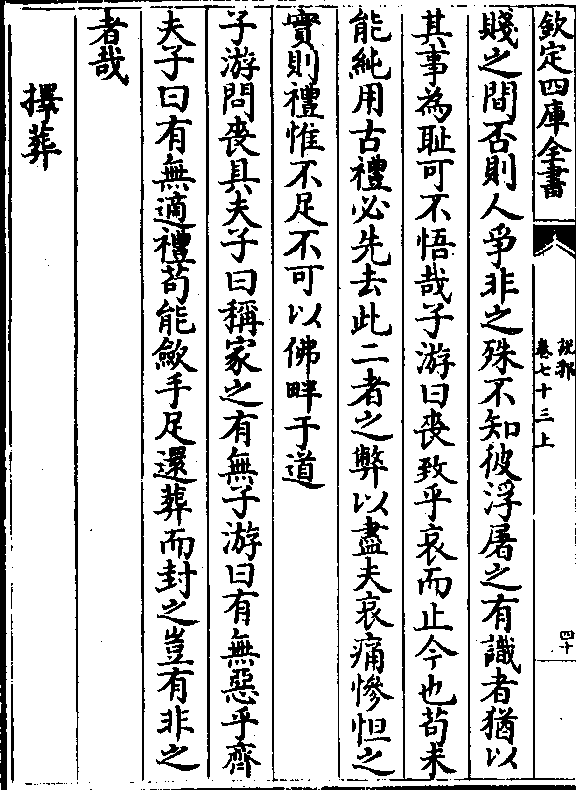 欽定四庫全書
說郛
卷七十三上
四十
賤之間否則人爭非之殊不知彼浮屠之有識者猶以
其事為耻可不悟哉子游曰喪致乎哀而止今也苟未
能純用古禮必先去此二者之弊以盡夫哀痛慘怛之
實則禮惟不足不可以佛畔于道
子游問喪具夫子曰稱家之有無子游曰有無惡乎齊
夫子曰有無適禮苟能斂手足還葬而封之豈有非之
者哉
擇葬